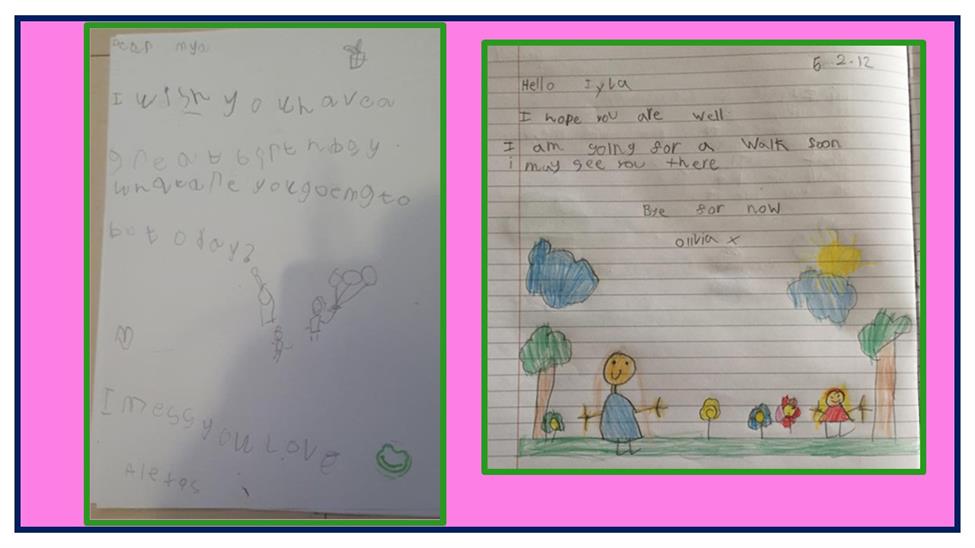 Dear mya
I wish you havea
great birthday.
whatare yougoemgto
botoday?
I messyou Love
Aletas
5 2.12
Hello Iyla
I hope you are well
I am going for a walk soon
i may see you there
Bye for now
olivia x